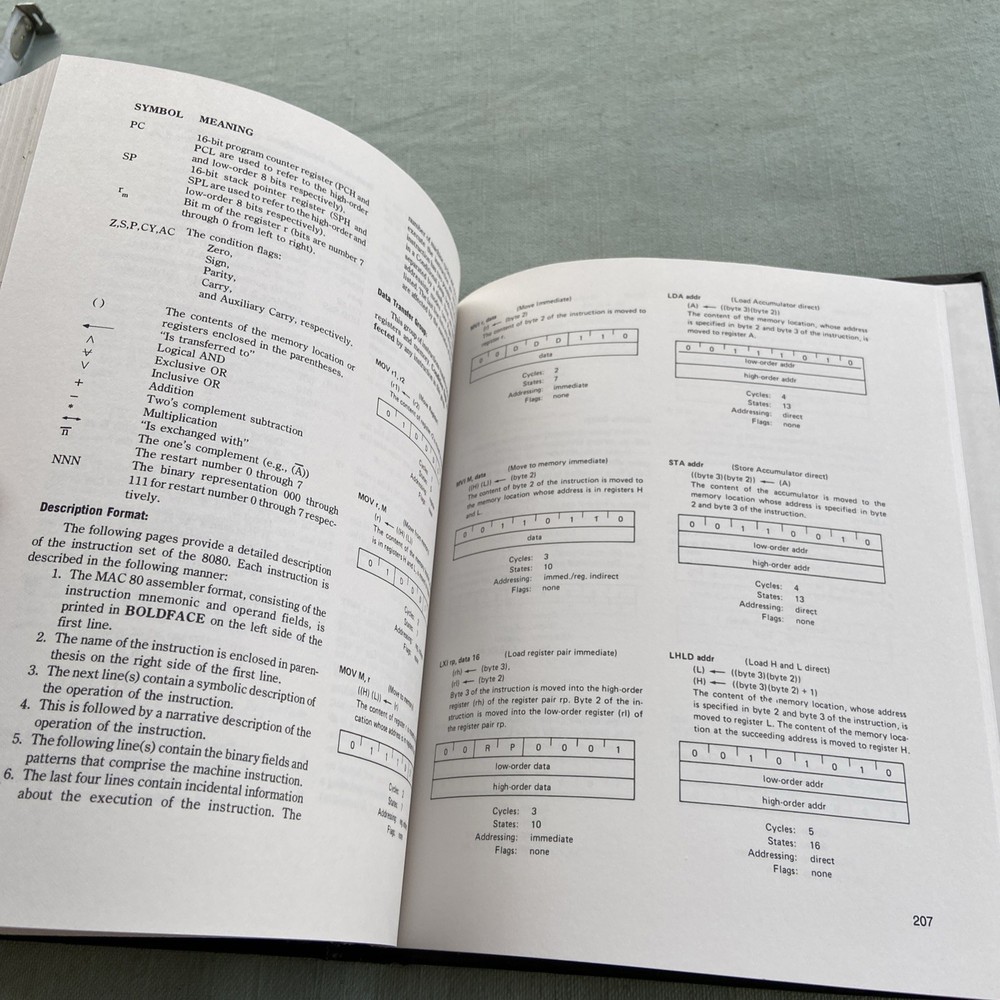 SYMBOL MEANING
PC 16-bit program counter register (PCH and
PCL are used to refer to the high-order
and low-order 8 bits respectively).
SP 16-bit stack pointer register (SPH and
SPL are used to refer to the high-order and
low-order 8 bits respectively).
rm Bit m of the register r (bits are number 7
through 0 from left to right).
Z,S,P,CY,AC The condition flags:
Zero,
Sign,
Parity,
Carry,
and Auxiliary Carry, respectively.
( ) The contents of the memory location or
registers enclosed in the parentheses.
← "Is transferred to"
∧ Logical AND
⊻ Exclusive OR
∨ Inclusive OR
+ Addition
− Two's complement subtraction
* Multiplication
↔ "Is exchanged with"
n̅ The one's complement (e.g., (A̅))
The restart number 0 through 7
NNN The binary representation 000 through
111 for restart number 0 through 7 respec-
tively.
Description Format:
The following pages provide a detailed description
of the instruction set of the 8080. Each instruction is
described in the following manner:
1. The MAC 80 assembler format, consisting of the
instruction mnemonic and operand fields, is
printed in BOLDFACE on the left side of the
first line.
2. The name of the instruction is enclosed in paren-
thesis on the right side of the first line.
3. The next line(s) contain a symbolic description of
the operation of the instruction.
4. This is followed by a narrative description of the
operation of the instruction.
5. The following line(s) contain the binary fields and
patterns that comprise the machine instruction.
6. The last four lines contain incidental information
about the execution of the instruction. The
Data Transfer Group
This group of
registers and
MOV r1, r2
(r1) ← (r2)
The content of register
0 1 D D
MOV r, M
(r) ← ((H) (L))
The content of the
is in registers H and L
0 1 D D
MOV M, r (Move to
((H) (L)) ← (r)
The content of register
cation whose address is
0 1 1 1
MVI r, data (Move Immediate)
(r) ← (byte 2)
The content of byte 2 of the instruction is moved to
register r.
0 0 D D D 1 1 0
data
Cycles: 2
States: 7
Addressing: immediate
Flags: none
MVI M, data (Move to memory immediate)
((H) (L)) ← (byte 2)
The content of byte 2 of the instruction is moved to
the memory location whose address is in registers H
and L.
0 0 1 1 0 1 1 0
data
Cycles: 3
States: 10
Addressing: immed./reg. indirect
Flags: none
LXI rp, data 16 (Load register pair immediate)
(rh) ← (byte 3),
(rl) ← (byte 2)
Byte 3 of the instruction is moved into the high-order
register (rh) of the register pair rp. Byte 2 of the in-
struction is moved into the low-order register (rl) of
the register pair rp.
0 0 R P 0 0 0 1
low-order data
high-order data
Cycles: 3
States: 10
Addressing: immediate
Flags: none
LDA addr (Load Accumulator direct)
(A) ← ((byte 3)(byte 2))
The content of the memory location, whose address
is specified in byte 2 and byte 3 of the instruction, is
moved to register A.
0 0 1 1 1 0 1 0
low-order addr
high-order addr
Cycles: 4
States: 13
Addressing: direct
Flags: none
STA addr (Store Accumulator direct)
((byte 3)(byte 2)) ← (A)
The content of the accumulator is moved to the
memory location whose address is specified in byte
2 and byte 3 of the instruction.
0 0 1 1 0 0 1 0
low-order addr
high-order addr
Cycles: 4
States: 13
Addressing: direct
Flags: none
LHLD addr (Load H and L direct)
(L) ← ((byte 3)(byte 2))
(H) ← ((byte 3)(byte 2) + 1)
The content of the memory location, whose address
is specified in byte 2 and byte 3 of the instruction, is
moved to register L. The content of the memory loca-
tion at the succeeding address is moved to register H.
0 0 1 0 1 0 1 0
low-order addr
high-order addr
Cycles: 5
States: 16
Addressing: direct
Flags: none
207